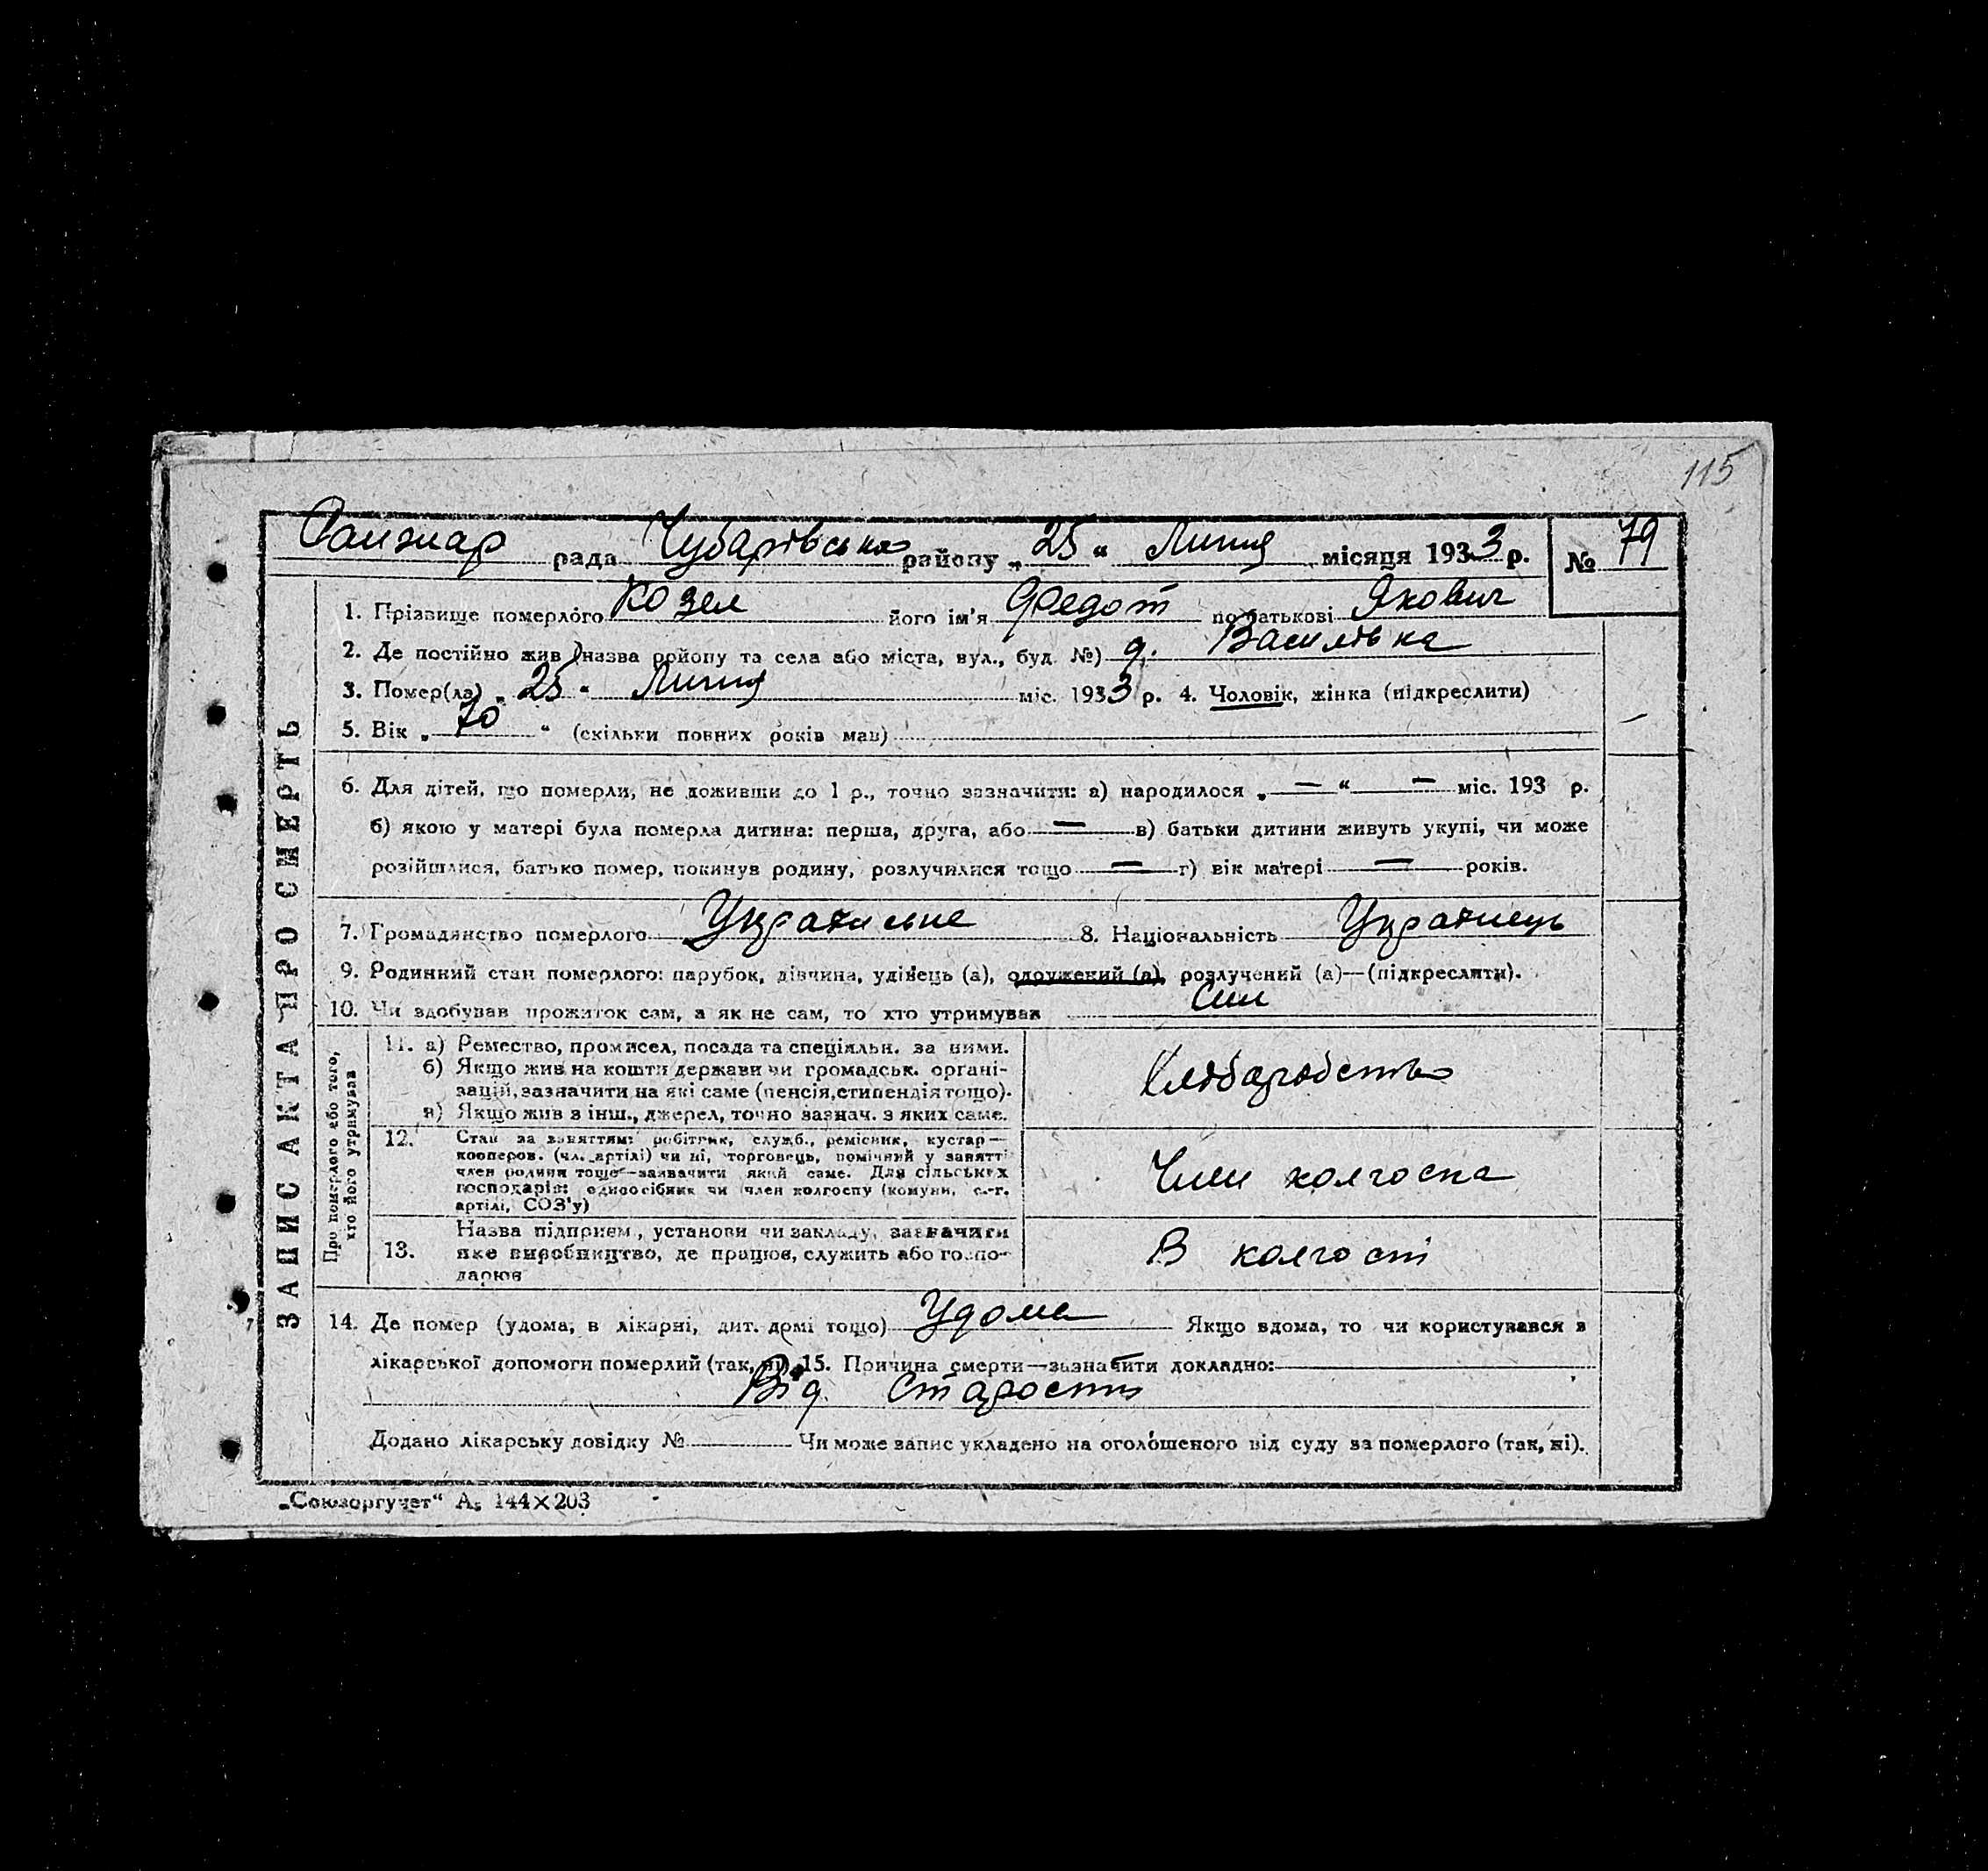 115
Санжар рада Чубарівська району „25“ Липня місяця 1933 р. № 79
ЗАПИС АКТА ПРО СМЕРТЬ
1. Прізвище померлого Козел його ім'я Федот по батькові Якович
2. Де постійно жив (назва району та села або міста, вул., буд. №) д. Василівка
3. Помер(ла) „25“ Липня міс. 1933 р. 4. Чоловік, жінка (підкреслити)
5. Вік „70“ (скільки повних років мав)
6. Для дітей, що померли, не доживши до 1 р., точно зазначити: а) народилося „—“ — міс. 193 р.
б) якою у матері була померла дитина: перша, друга, або — в) батьки дитини живуть укупі, чи може
розійшлися, батько помер, покинув родину, розлучилися тощо — г) вік матері — років.
7. Громадянство померлого Українське 8. Національність Українець
9. Родинний стан померлого: парубок, дівчина, удівець (а), одружений (а), розлучений (а)—(підкреслити).
10. Чи здобував прожиток сам, а як не сам, то хто утримував Син
Про померлого або того, хто його утримував
11. а) Ремество, промисел, посада та спеціяльн. за ними.
б) Якщо жив на кошти держави чи громадськ. органі-
зацій, зазначити на які саме (пенсія, стипендія тощо).
в) Якщо жив з інш., джерел, точно зазнач. з яких саме.
Хліборобство
12. Стан за заняттям: робітник, служб., ремісник, кустар—
кооперов. (чл. артілі) чи ні, торговець, помічний у занятті
член родини тощо—зазначити який саме. Для сільських
господарів: одноосібник чи член колгоспу (комуни, с.-г.
артілі, СОЗ'у)
Член колгоспа
13. Назва підприєм., установи чи закладу, зазначити
яке виробництво, де працює, служить або госпо-
дарює
В колгоспі
14. Де помер (удома, в лікарні, дит. домі тощо) Удома Якщо вдома, то чи користувався з
лікарської допомоги померлий (так, ні). 15. Причина смерти—зазначити докладно:
Від старости
Додано лікарську довідку № Чи може запис укладено на оголошеного від суду за померлого (так, ні).
„Союзоргучет“ А₅ 144×203